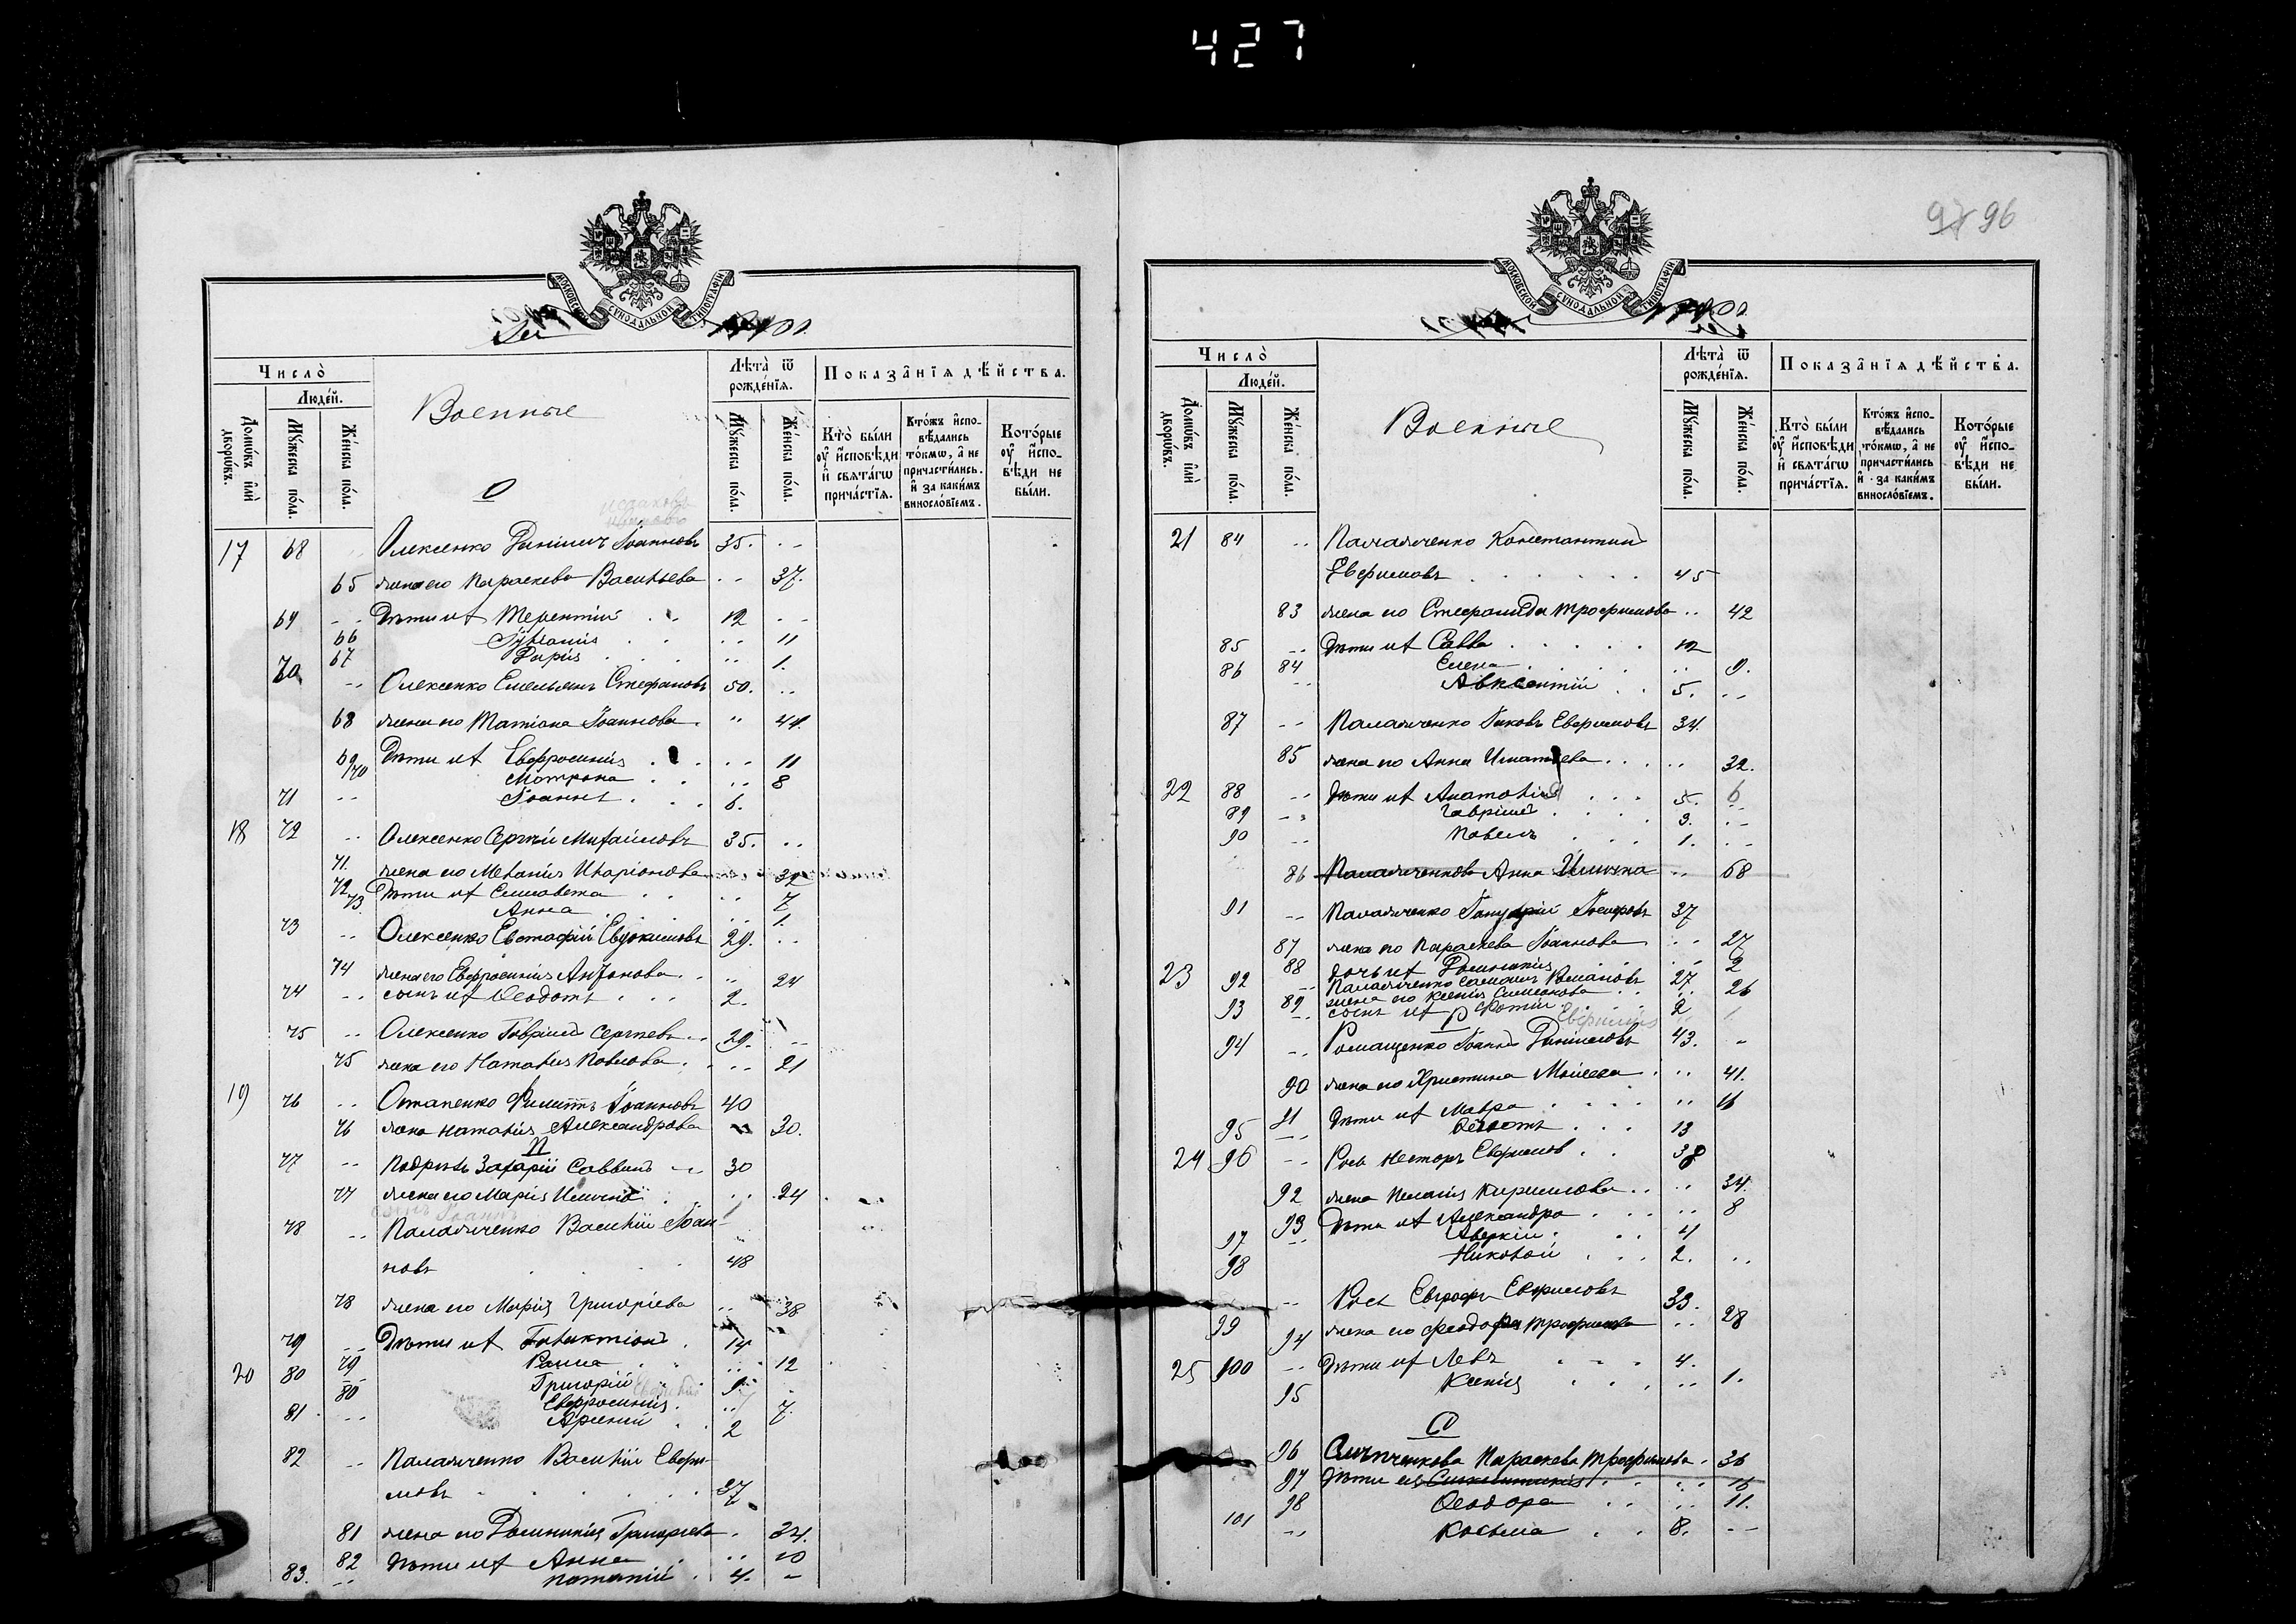 427
МОСКОВСКОЙ СѴНОДАЛЬНОЙ ТИПОГРАФІИ
Число̀
Людéй.
Домѡ́въ и҆лѝ дворѡ́въ.
Мꙋ́жеска по́ла.
Же́нска по́ла.
Военные
Лѣта̀ ѿ рожде́нїѧ.
Мꙋ́жеска по́ла.
Же́нска по́ла.
Показа̑нїѧ дѣ́йства.
Кто̀ бы́ли ᲂу҆ и҆́сповѣди и҆ свѧта́гѡ прича́стїѧ.
Кто́жъ и҆спо-вѣ́дались то́кмѡ, а҆ не причасти́лись. и҆ за каки́мъ винослѡ́вїемъ.
Кото́рые ᲂу҆ и҆́спо-вѣди не бы́ли.
О
17 68 Олексенко Даніилъ Іоанновъ 35.
65 жена его Параскева Васильева 37.
69 Дѣти их Терентій 12
66 11
67 Дарія 1.
70 Олексенко Емельянъ Стефановъ 50.
68 жена его Татіана Іоаннова 44.
69 Дѣти их Евфросинія 11
70 Матрона 8
71 Іоаннъ 6.
18 72 Олексенко Сергѣй Михайловъ 35.
71. жена его Меланія Иларіонова 32
72 Дѣти их Елисавета 7
73 Анна 1.
73 Олексенко Евстафій Евдокимовъ 29.
74 жена его Евфросинія Антонова 24
74 сынъ их Ѳеодотъ 2.
75 Олексенко Гавріилъ Сергѣевъ 29.
75 жена его Наталія Павлова 21
19 76 Остапенко Филиппъ Іоанновъ 40
76 жена Наталія Александрова 30.
П
77 Подрѣзъ Захарій Саввинъ 30
77 жена его Марія Ильина 24
сынъ Іоаннъ 1
78 Паламаченко Василій Іоан-
новъ 48
78 жена его Марія Григоріева 38
79 Дѣти их Галактіонъ 14
79 Раиса 12
20 80 Григорій 9
80 Евфросинія 7.
81 Арсеній 2
82 Паламаченко Василій Евфи-
мовъ 37
81 жена его Домникія Григорьева 34.
82 Дѣти их Анна 10
83. Потапій 4.
97 96
МОСКОВСКОЙ СѴНОДАЛЬНОЙ ТИПОГРАФІИ
Число̀
Людéй.
Домѡ́въ и҆лѝ дворѡ́въ.
Мꙋ́жеска по́ла.
Же́нска по́ла.
Военные
Лѣта̀ ѿ рожде́нїѧ.
Мꙋ́жеска по́ла.
Же́нска по́ла.
Показа̑нїѧ дѣ́йства.
Кто̀ бы́ли ᲂу҆ и҆́сповѣди и҆ свѧта́гѡ прича́стїѧ.
Кто́жъ и҆спо-вѣ́дались то́кмѡ, а҆ не причасти́лись и҆ за каки́мъ винослѡ́вїемъ.
Кото́рые ᲂу҆ и҆́спо-вѣди не бы́ли.
21 84 Паламаченко Константинъ
Евфимовъ 45
83 жена его Стефанида Трофимова 42
85 Дѣти их Савва 12
84 Елена 9.
86 Авксентій 5.
87 Паламаченко Іаковъ Евфимовъ 34.
85 жена его Анна Игнатьева 32.
22 88 Дѣти их Анатолій 5. 6
89 Гавріилъ 3.
90 Павелъ 1.
86 Паламаченкова Анна Ильина 68
91 Паламаченко Іосифовъ 37
87 жена его Параскева Іоаннова 27
88 дочь их Домникія 2
23 92 Паламаченко Романовъ 27
89 жена его Ксенія Симеонова 26
93 сынъ их Фотій 2
Р
94 Ромащенко Іоаннъ Даніиловъ 43.
90 жена его Христина Моисеева 41.
91 Дѣти их Мавра 16
95 Ѳеодотъ 13
24 96 Рось Несторъ Евфимов 38
92 жена Пелагія Кириллова 34.
93 Дѣти их Александра 8
97 Аверкій 4
98 Николай 2.
99 Рось Евграфъ Евфимовъ 33.
94 жена его Феодора Трофимова 28
25 100 Дѣти их Левъ 4.
95 Ксенія 1.
С
96 Параскева Трофимова 36
97 Дѣти ея 16
98 Ѳеодора 11.
101 Косьма 8.